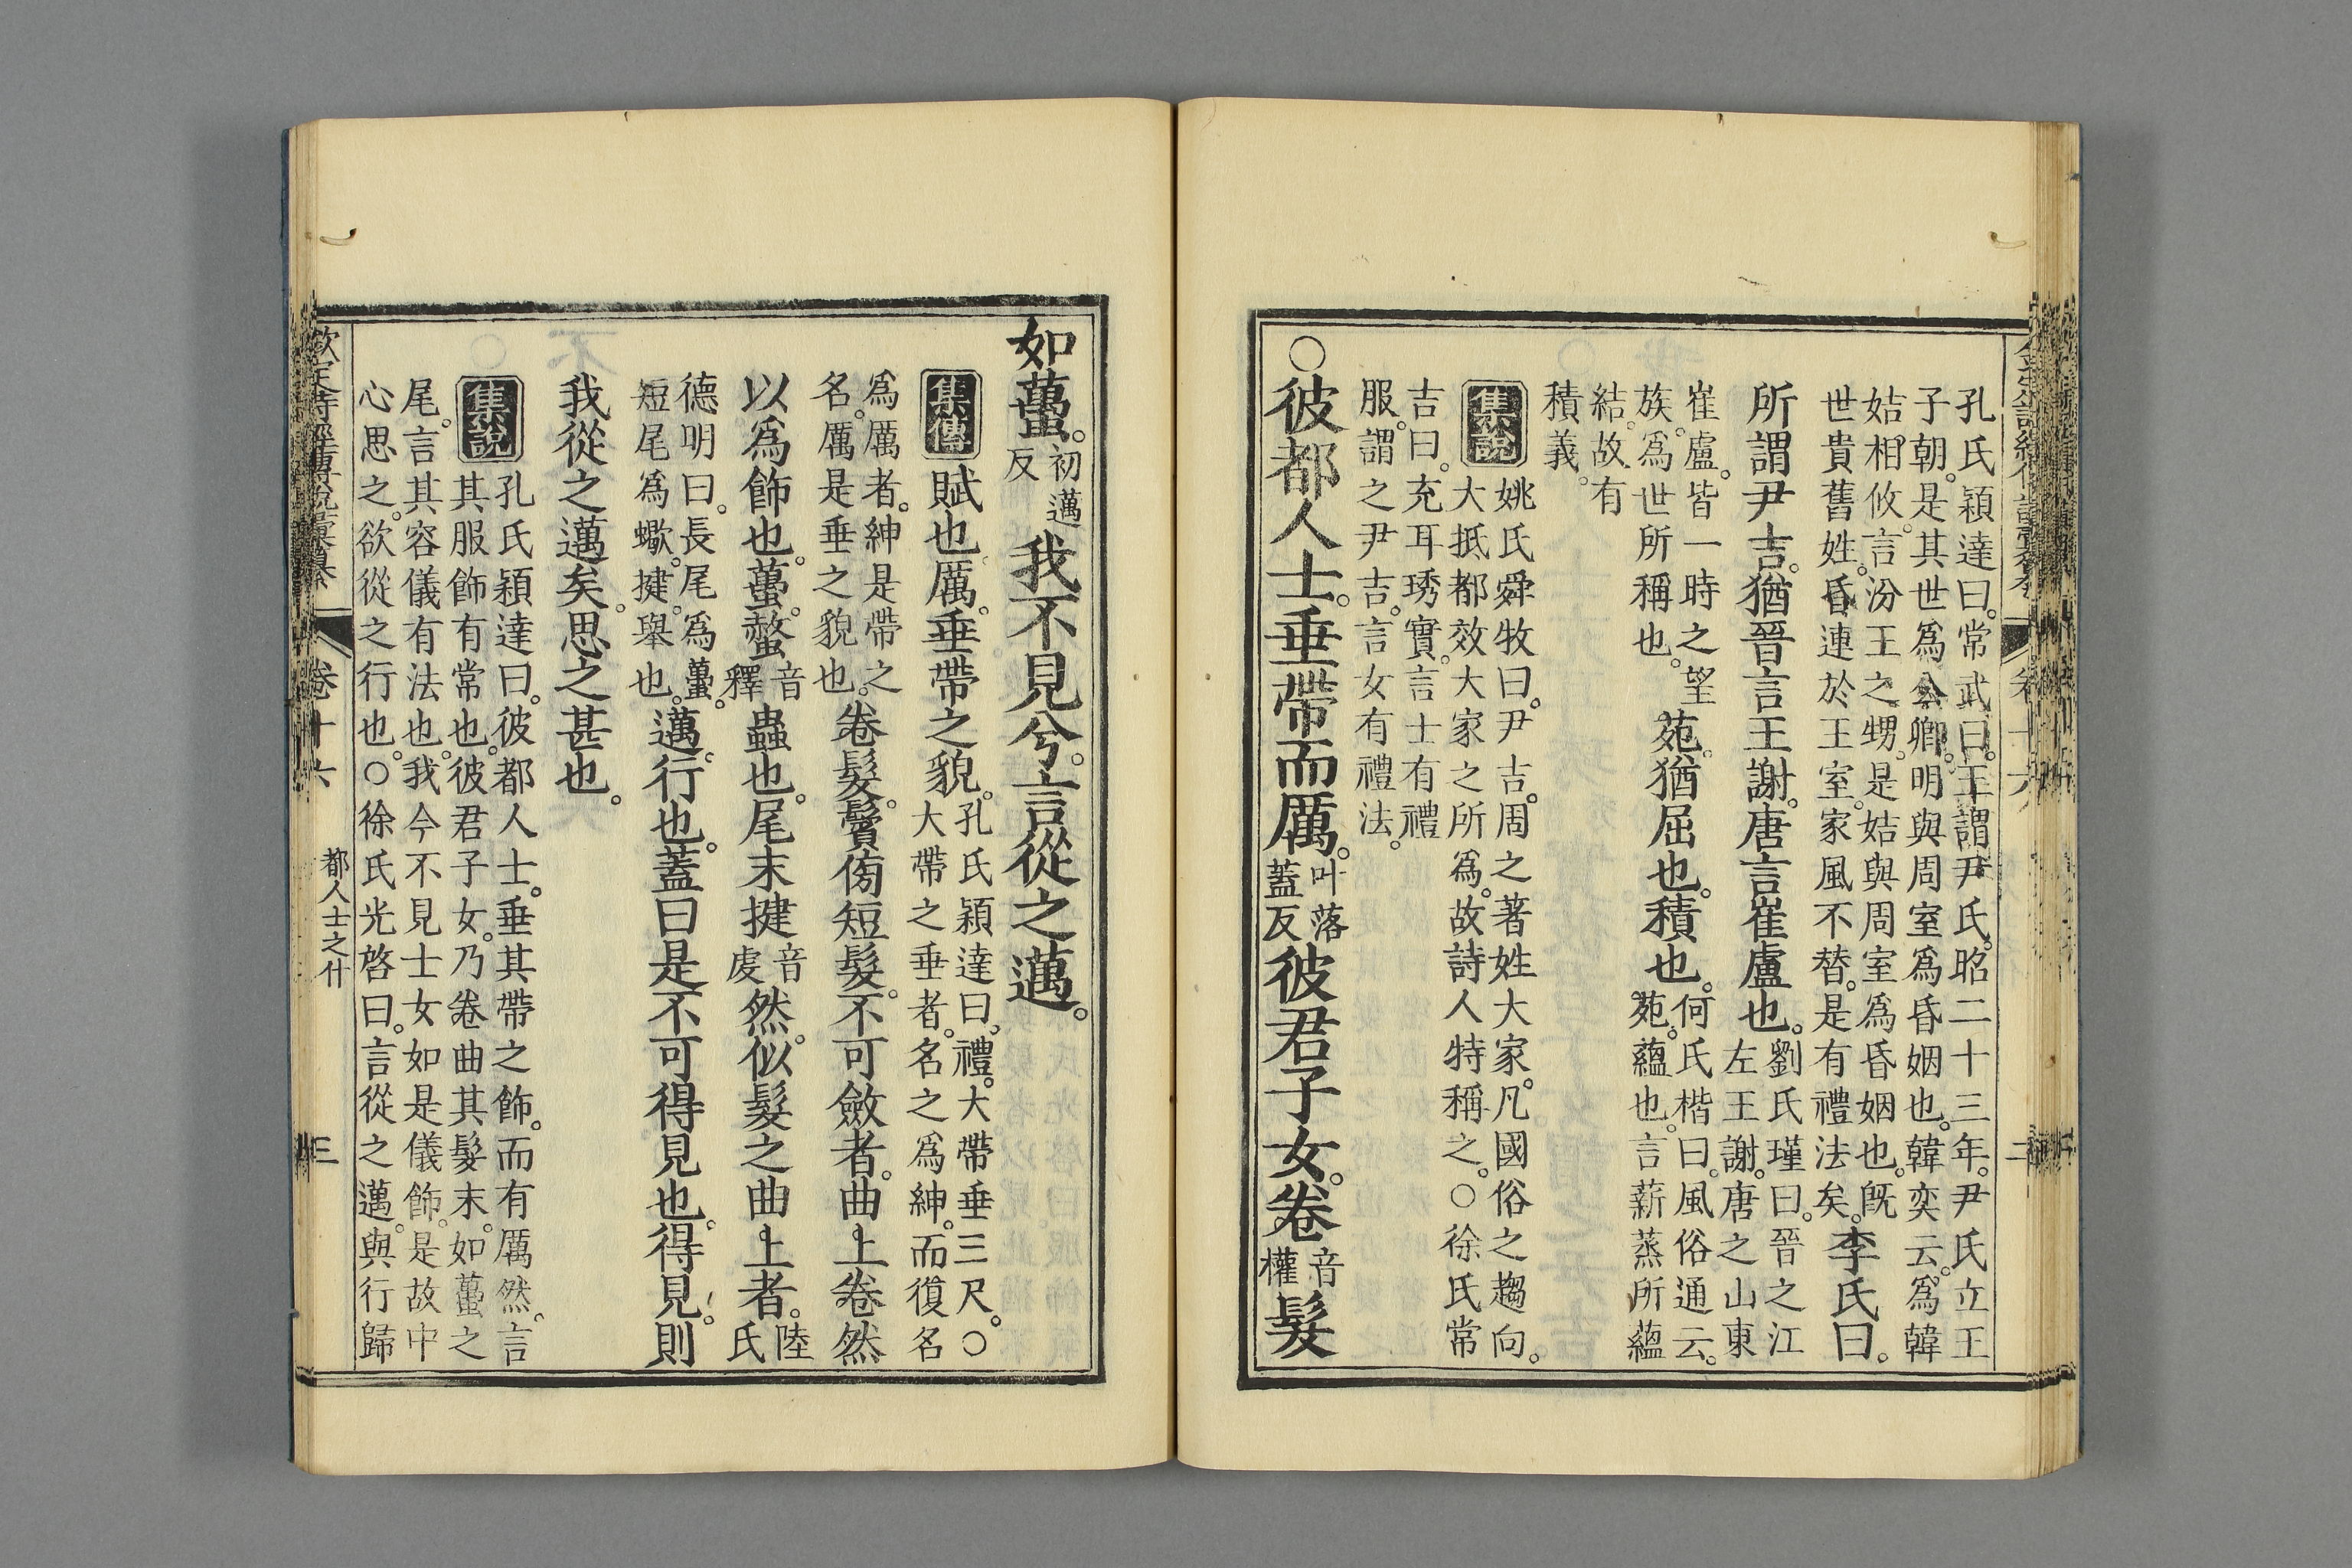 孔氏穎達曰。常武曰。王謂尹氏。昭二十三年。尹氏立王
子朝。是其世爲公卿。明與周室爲昏姻也。韓奕云。爲韓
姞相攸。言汾王之甥。是姞與周室爲昏姻也。旣
世貴舊姓。昏連於王室。家風不替。是有禮法矣。李氏曰。
所謂尹吉。猶晉言王謝。唐言崔盧也。
劉氏瑾曰。晉之江
左王謝。唐之山東
崔盧。皆一時之望
族。爲世所稱也。
苑。猶屈也。積也。
何氏楷曰。風俗通云。
苑。蘊也。言薪蒸所蘊
結。故有
積義。
集說
姚氏舜牧曰。尹吉。周之著姓大家。凡國俗之趨向。
大抵都效大家之所爲。故詩人特稱之。○徐氏常
吉曰。充耳琇實。言士有禮
服。謂之尹吉。言女有禮法。
○彼都人士。垂帶而厲。叶落
蓋反
彼君子女。卷音
權
髮
如蠆。初邁
反
我不見兮。言從之邁。
集傳
賦也。厲。垂帶之貌。
孔氏穎達曰。禮。大帶垂三尺。○
大帶之垂者。名之爲紳。而復名
爲厲者。紳是帶之
名。厲是垂之貌也。
卷髮。鬢傍短髮。不可斂者。曲上卷然
以爲飾也。蠆。螫音
釋
蟲也。尾末揵音
虔
然。似髮之曲上者。陸
氏
德明曰。長尾爲蠆。
短尾爲蠍。揵。舉也。
邁。行也。蓋曰是不可得見也。得見。則
我從之邁矣。思之甚也。
集說
孔氏穎達曰。彼都人士。垂其帶之飾。而有厲然。言
其服飾有常也。彼君子女。乃卷曲其髮末。如蠆之
尾。言其容儀有法也。我今不見士女如是儀飾。是故中
心思之。欲從之行也。○徐氏光啓曰。言從之邁。與行歸
欽定詩經傳說彙纂
卷十六
都人士之什
三